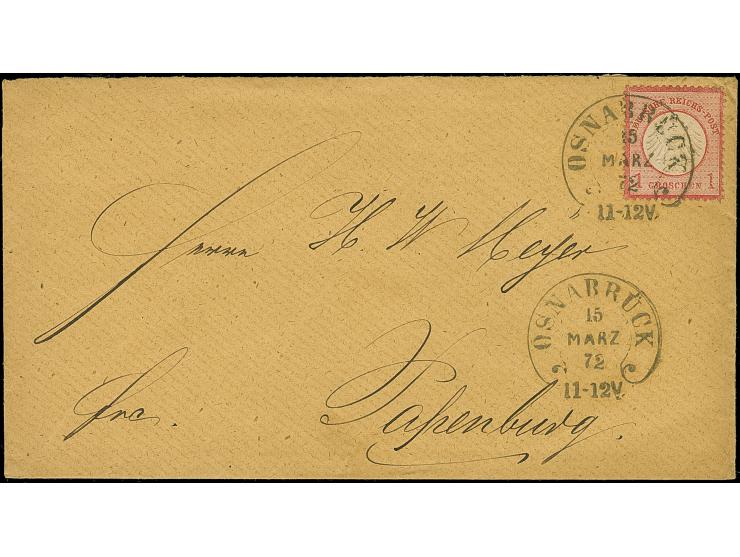 OSNABRÜCK
15
MÄRZ
72
11-12V.
DEUTSCHE REICHS-POST
1 GROSCHEN 1
Herrn H. W Meyer
OSNABRÜCK
15
MARZ
72
11-12V.
frc. Papenburg.